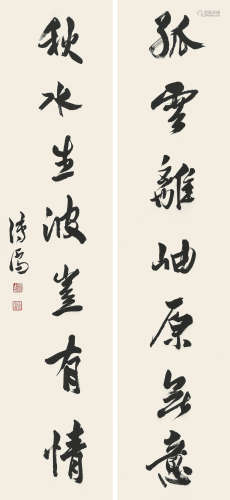 孤雲離岫原無意
秋水生波豈有情
溥儒